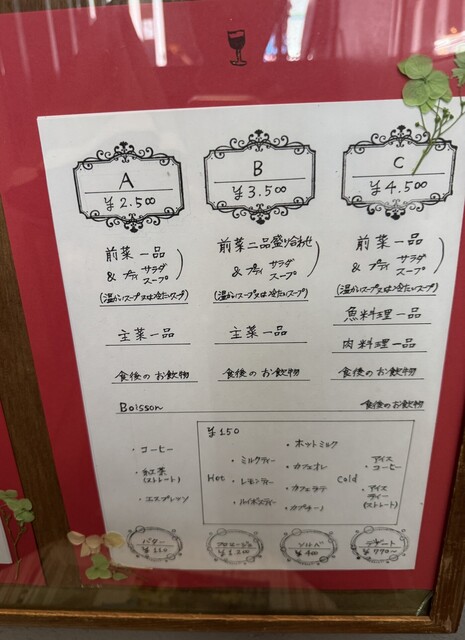 A
¥2.500
前菜一品
& プティ サラダ
スープ
(温かいスープ又は冷たいスープ)
主菜一品
食後のお飲物
B
¥3.500
前菜二品盛り合わせ
& プティ サラダ
スープ
(温かいスープ又は冷たいスープ)
主菜一品
食後のお飲物
C
¥4.500
前菜一品
& プティ サラダ
スープ
(温かいスープ又は冷たいスープ)
魚料理一品
肉料理一品
食後のお飲物
Boisson
食後のお飲物
・コーヒー
・紅茶
(ストレート)
・エスプレッソ
¥150
Hot
・ミルクティー
・レモンティー
・ルイボスティー
・ホットミルク
・カフェオレ
・カフェラテ
・カプチーノ
Cold
・アイス
コーヒー
・アイス
ティー
(ストレート)
バター
フロマージュ
ソルベ
¥400
デザート
¥770～